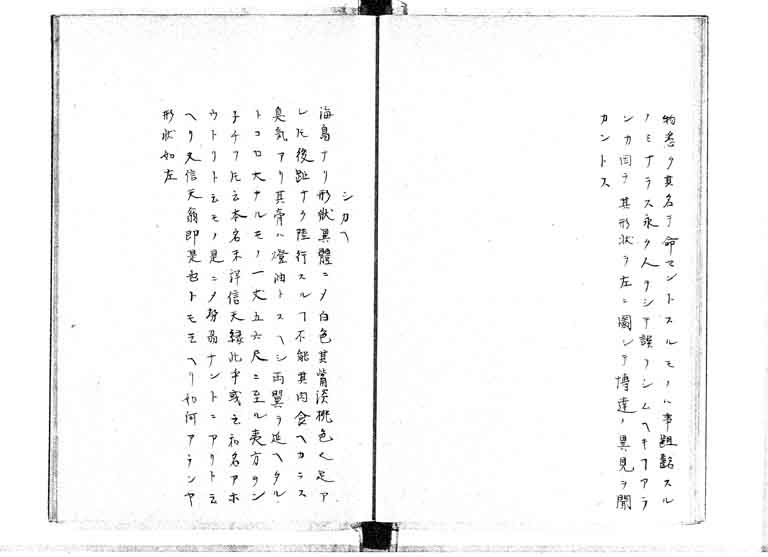 物悉ク其名ヲ命セントスルモノハ事齟齬スル
ノミナラス永ク人ヲシテ誤ラシムヘキヿアラ
ンカ因テ其形状ヲ左ニ圖シテ博達ノ異見ヲ聞
カントス
シカヘ
海鳥ナリ形状異體ニメ白色其觜淡桃色ヘ足ア
レ𪜈後趾ナク陸行スルヿ不能其肉食ヘカラス
臭気アリ其膏ハ燈油トスヘシ両翼ヲ延ヘタル
トコロ大ナルモノ一丈五六尺ニ至ル夷方
チフ𪜈云本名未詳信天縁此乎或云和名アホ
ウトリト云モノ是ニメ ナントニアリト云
ヘリ又信天翁即是也トモ云ヘリ如何アランヤ
形状如左